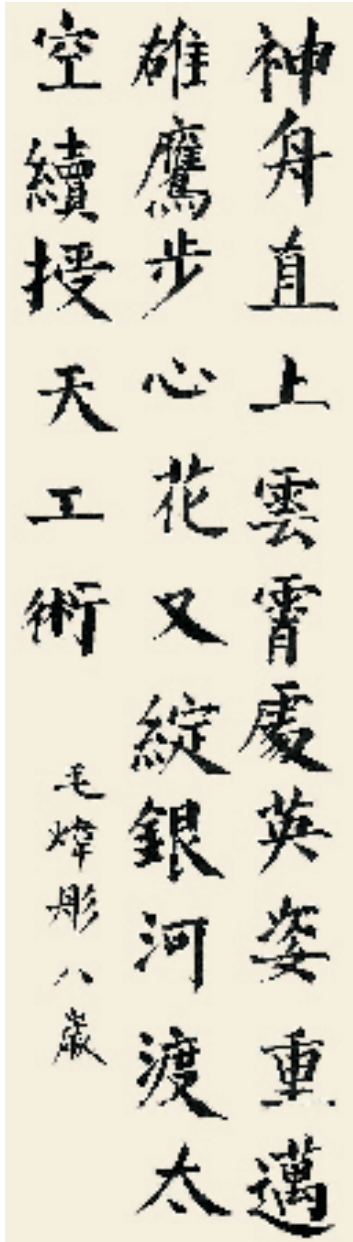 神舟直上雲霄處英姿重邁
雄鷹步心花又綻銀河渡太
空續授天工術
毛煒彤八歲